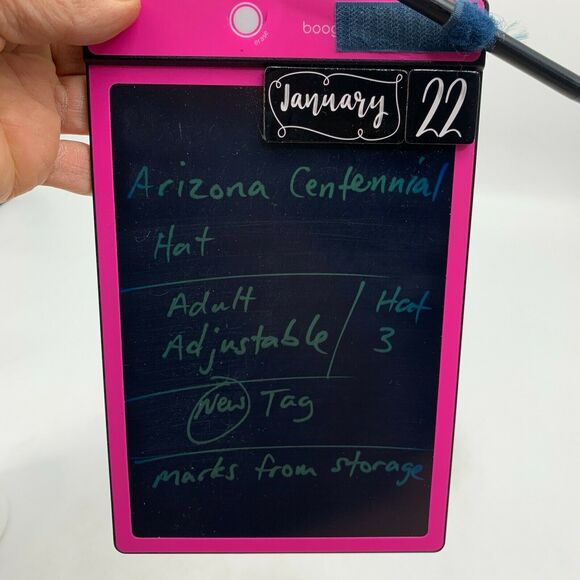 boog
erase
January 22
Arizona Centennial
Hat
Adult Hat
Adjustable / 3
New Tag
marks from storage